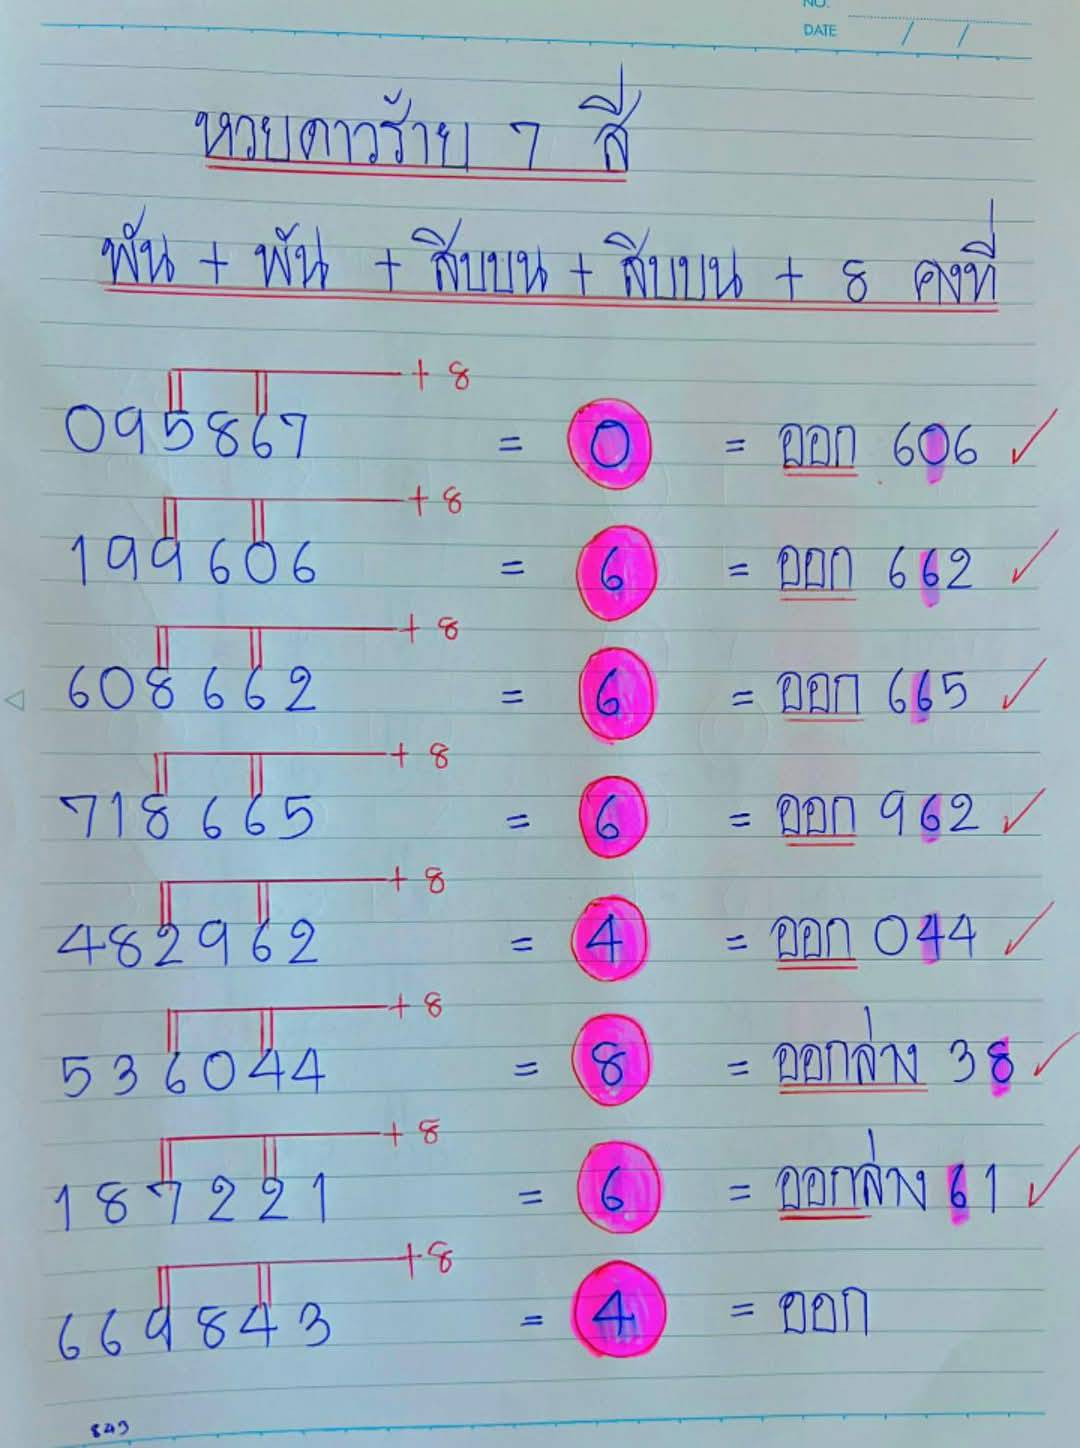 NO.
DATE / /
หวยดาวร้าย 7 สี
พัน + พัน + สิบบน + สิบบน + 8 คงที่
+ 8
095867 = 0 = ออก 606 ✓
+ 8
199606 = 6 = ออก 662 ✓
+ 8
608662 = 6 = ออก 665 ✓
+ 8
718665 = 6 = ออก 962 ✓
+ 8
482962 = 4 = ออก 044 ✓
+ 8
536044 = 8 = ออกล่าง 38 ✓
+ 8
187221 = 6 = ออกล่าง 61 ✓
+8
669843 = 4 = ออก